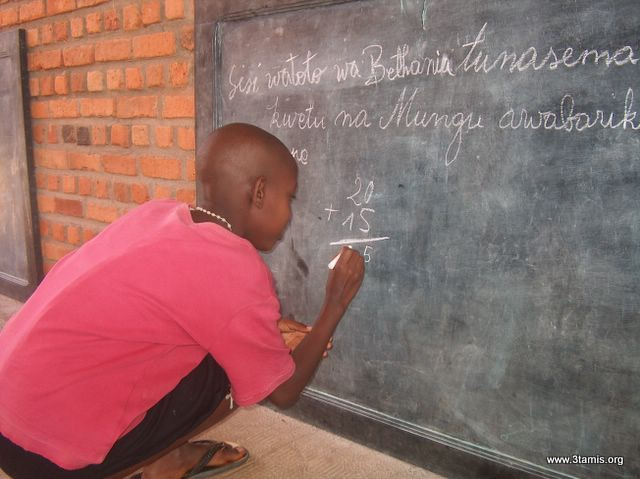 Sisi watoto wa Bethania tunasema
kwetu na Mungu awabarik
no
20
+ 15
5
www.3tamis.org